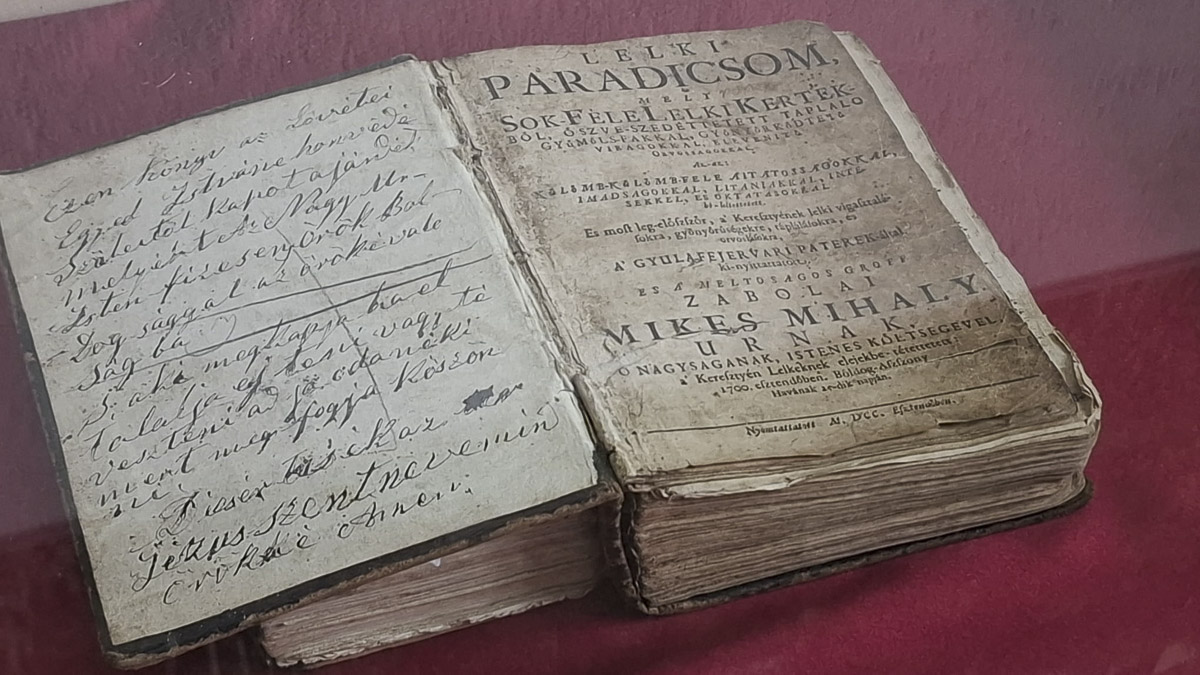 Ezen könyv az Lövétei
Ezred Istváne honvéde
Szüleitöl kapot ajándé,
melyért Az Nagy Ur-
Isten fizesen örök Bol
Dog sággal az örökévaló
ság ba
S a ki meg kapja ha el
találja
veszteni ad ja odanéki
mert meg fogja köszön
ni.
Dicsértesék az
Jézus szent neve mind
örökké Amen.
LELKI
PARADICSOM,
MELY
SOK-FÉLE LELKI KERTEK-
BÖL, ÖSZVE-SZEDETTETETT TÁPLÁLÓ
GYÜMÖLSFÁKKAL, GYÖNYÖRKÖDTETÖ
VIRÁGOKKAL, ELEVENITÖ
ORVOSSÁGOKKAL,
Az-az:
KÜLÖMB-KÜLÖMBFÉLE AITATOSSÁGOKKAL,
IMADSAGOKKAL, LITANIAKKAL, INTE-
SEKKEL, ES OKTATASOKKAL
Es most leg-elöszször, a' Keresztyének lelki vigasztalá-
sokra, gyönyörüségekre, táplálásokra, és
orvoslásokra,
A' GYULAFEJERVARI PATEREK-által
ki-nyittattatott,
ES A MELTOSAGOS GROFF
ZABOLAI
MIKES MIHALY
URNAK,
O NAGYSAGANAK, ISTENES KÖLTSEGEVEL,
a' Keresztyén Lelkeknek elejekbe-tétettetett:
1700. esztendöben. Boldog-Aszszony
Havának 10-dik napján.
Nyomtattatott M. DCC. Esztendöben.